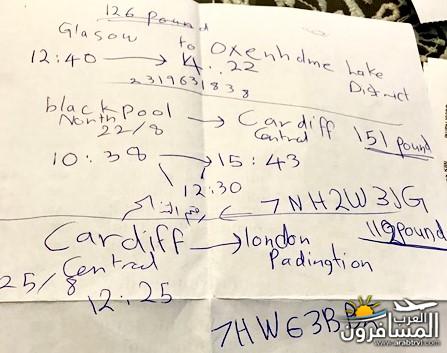 126 pound
Glasow to Oxenholme Lake District
12:40 → 4..22
2319631838
blackpool North → Cardiff Central 151 pound
22/8
10:38 → 15:43
12:30
7NH2W3JG
Cardiff Central → london Padingtion 119pound
25/8
12:25
7HW63B
العرب المسافرون
www.arabtrvl.com